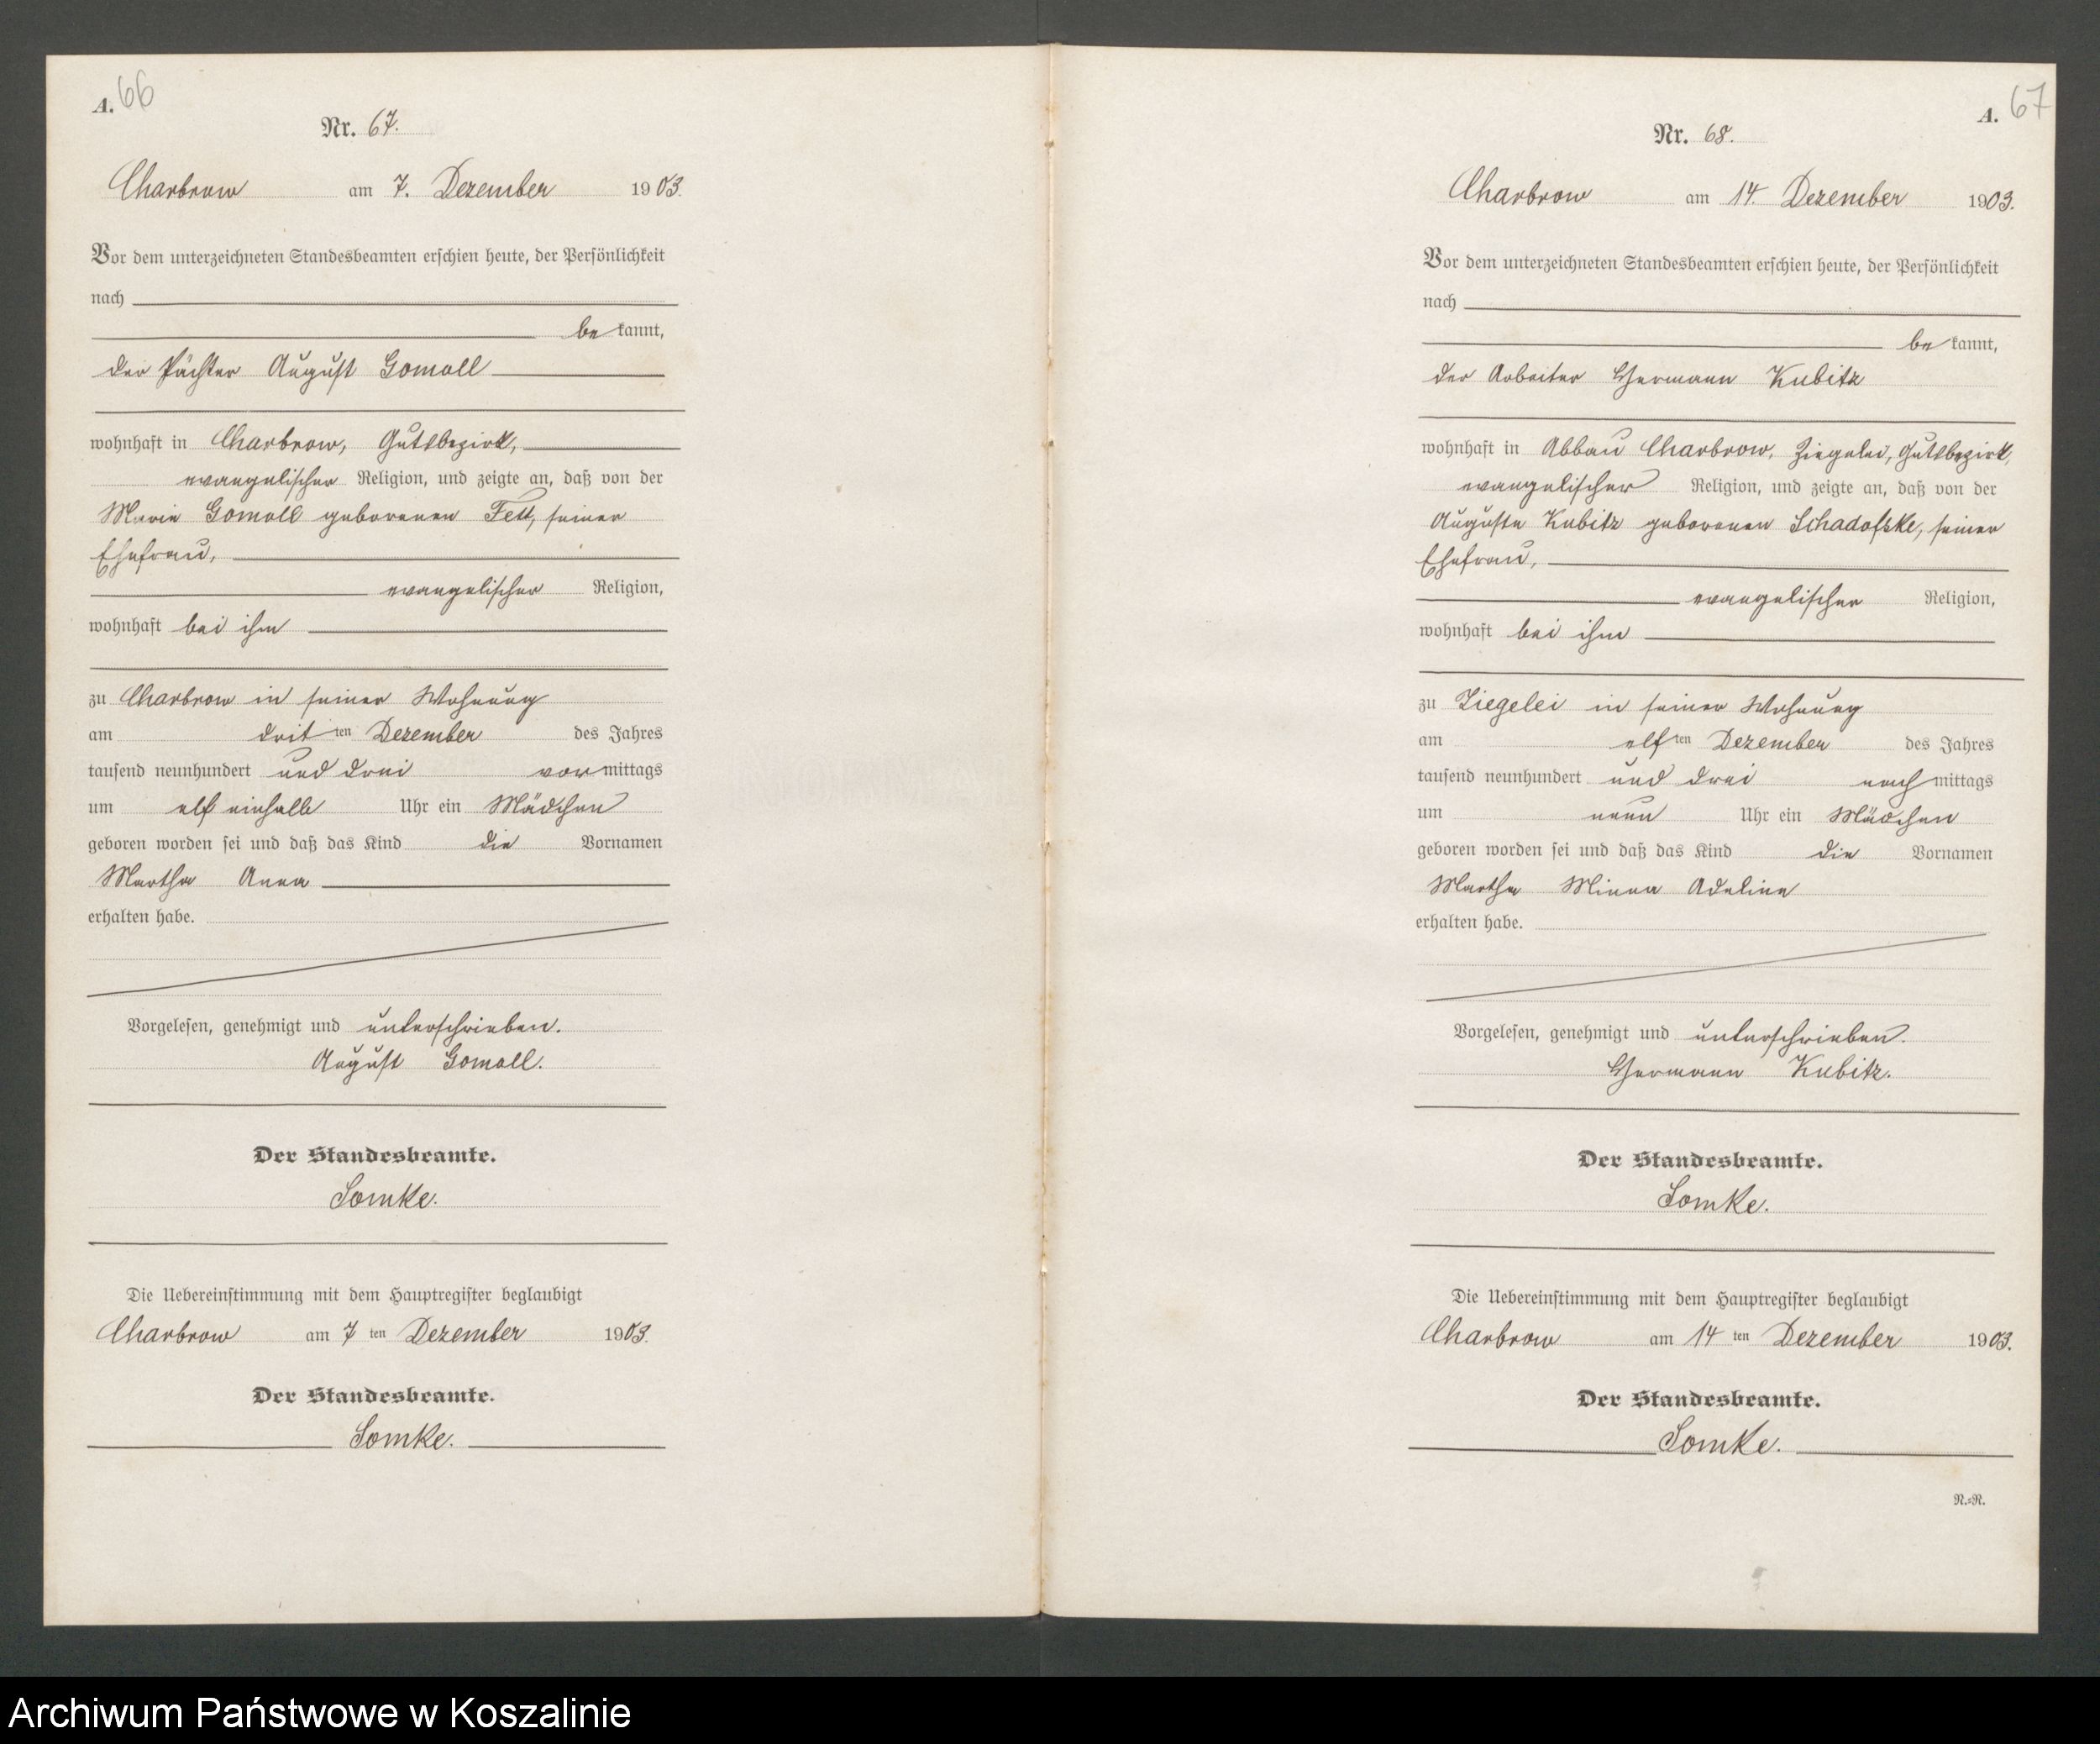 A. 66
Nr. 67.
Charbrow am 7. Dezember 1903.
Vor dem unterzeichneten Standesbeamten erschien heute, der Persönlichkeit
nach
be kannt,
der Pächter August Gomoll
wohnhaft in Charbrow, Gutsbezirk,
evangelischer Religion, und zeigte an, daß von der
Marie Gomoll geborenen Fett, seiner
Ehefrau,
evangelischer Religion,
wohnhaft bei ihm
zu Charbrow in seiner Wohnung
am dritten Dezember des Jahres
tausend neunhundert und drei vormittags
um elf einhalb Uhr ein Mädchen
geboren worden sei und daß das Kind die Vornamen
Martha Anna
erhalten habe.
Vorgelesen, genehmigt und unterschrieben.
August Gomoll.
Der Standesbeamte.
Somke.
Die Uebereinstimmung mit dem Hauptregister beglaubigt
Charbrow am 7 ten Dezember 1903.
Der Standesbeamte.
Somke.
A. 67
Nr. 68.
Charbrow am 14. Dezember 1903.
Vor dem unterzeichneten Standesbeamten erschien heute, der Persönlichkeit
nach
be kannt,
der Arbeiter Hermann Kubitz
wohnhaft in Abbau Charbrow, Ziegelei, Gutsbezirk,
evangelischer Religion, und zeigte an, daß von der
Auguste Kubitz geborenen Schadofske, seiner
Ehefrau,
evangelischer Religion,
wohnhaft bei ihm
zu Ziegelei in seiner Wohnung
am elften Dezember des Jahres
tausend neunhundert und drei nachmittags
um neun Uhr ein Mädchen
geboren worden sei und daß das Kind die Vornamen
Martha Minna Adeline
erhalten habe.
Vorgelesen, genehmigt und unterschrieben.
Hermann Kubitz.
Der Standesbeamte.
Somke.
Die Uebereinstimmung mit dem Hauptregister beglaubigt
Charbrow am 14 ten Dezember 1903.
Der Standesbeamte.
Somke.
N.=R.
Archiwum Państwowe w Koszalinie